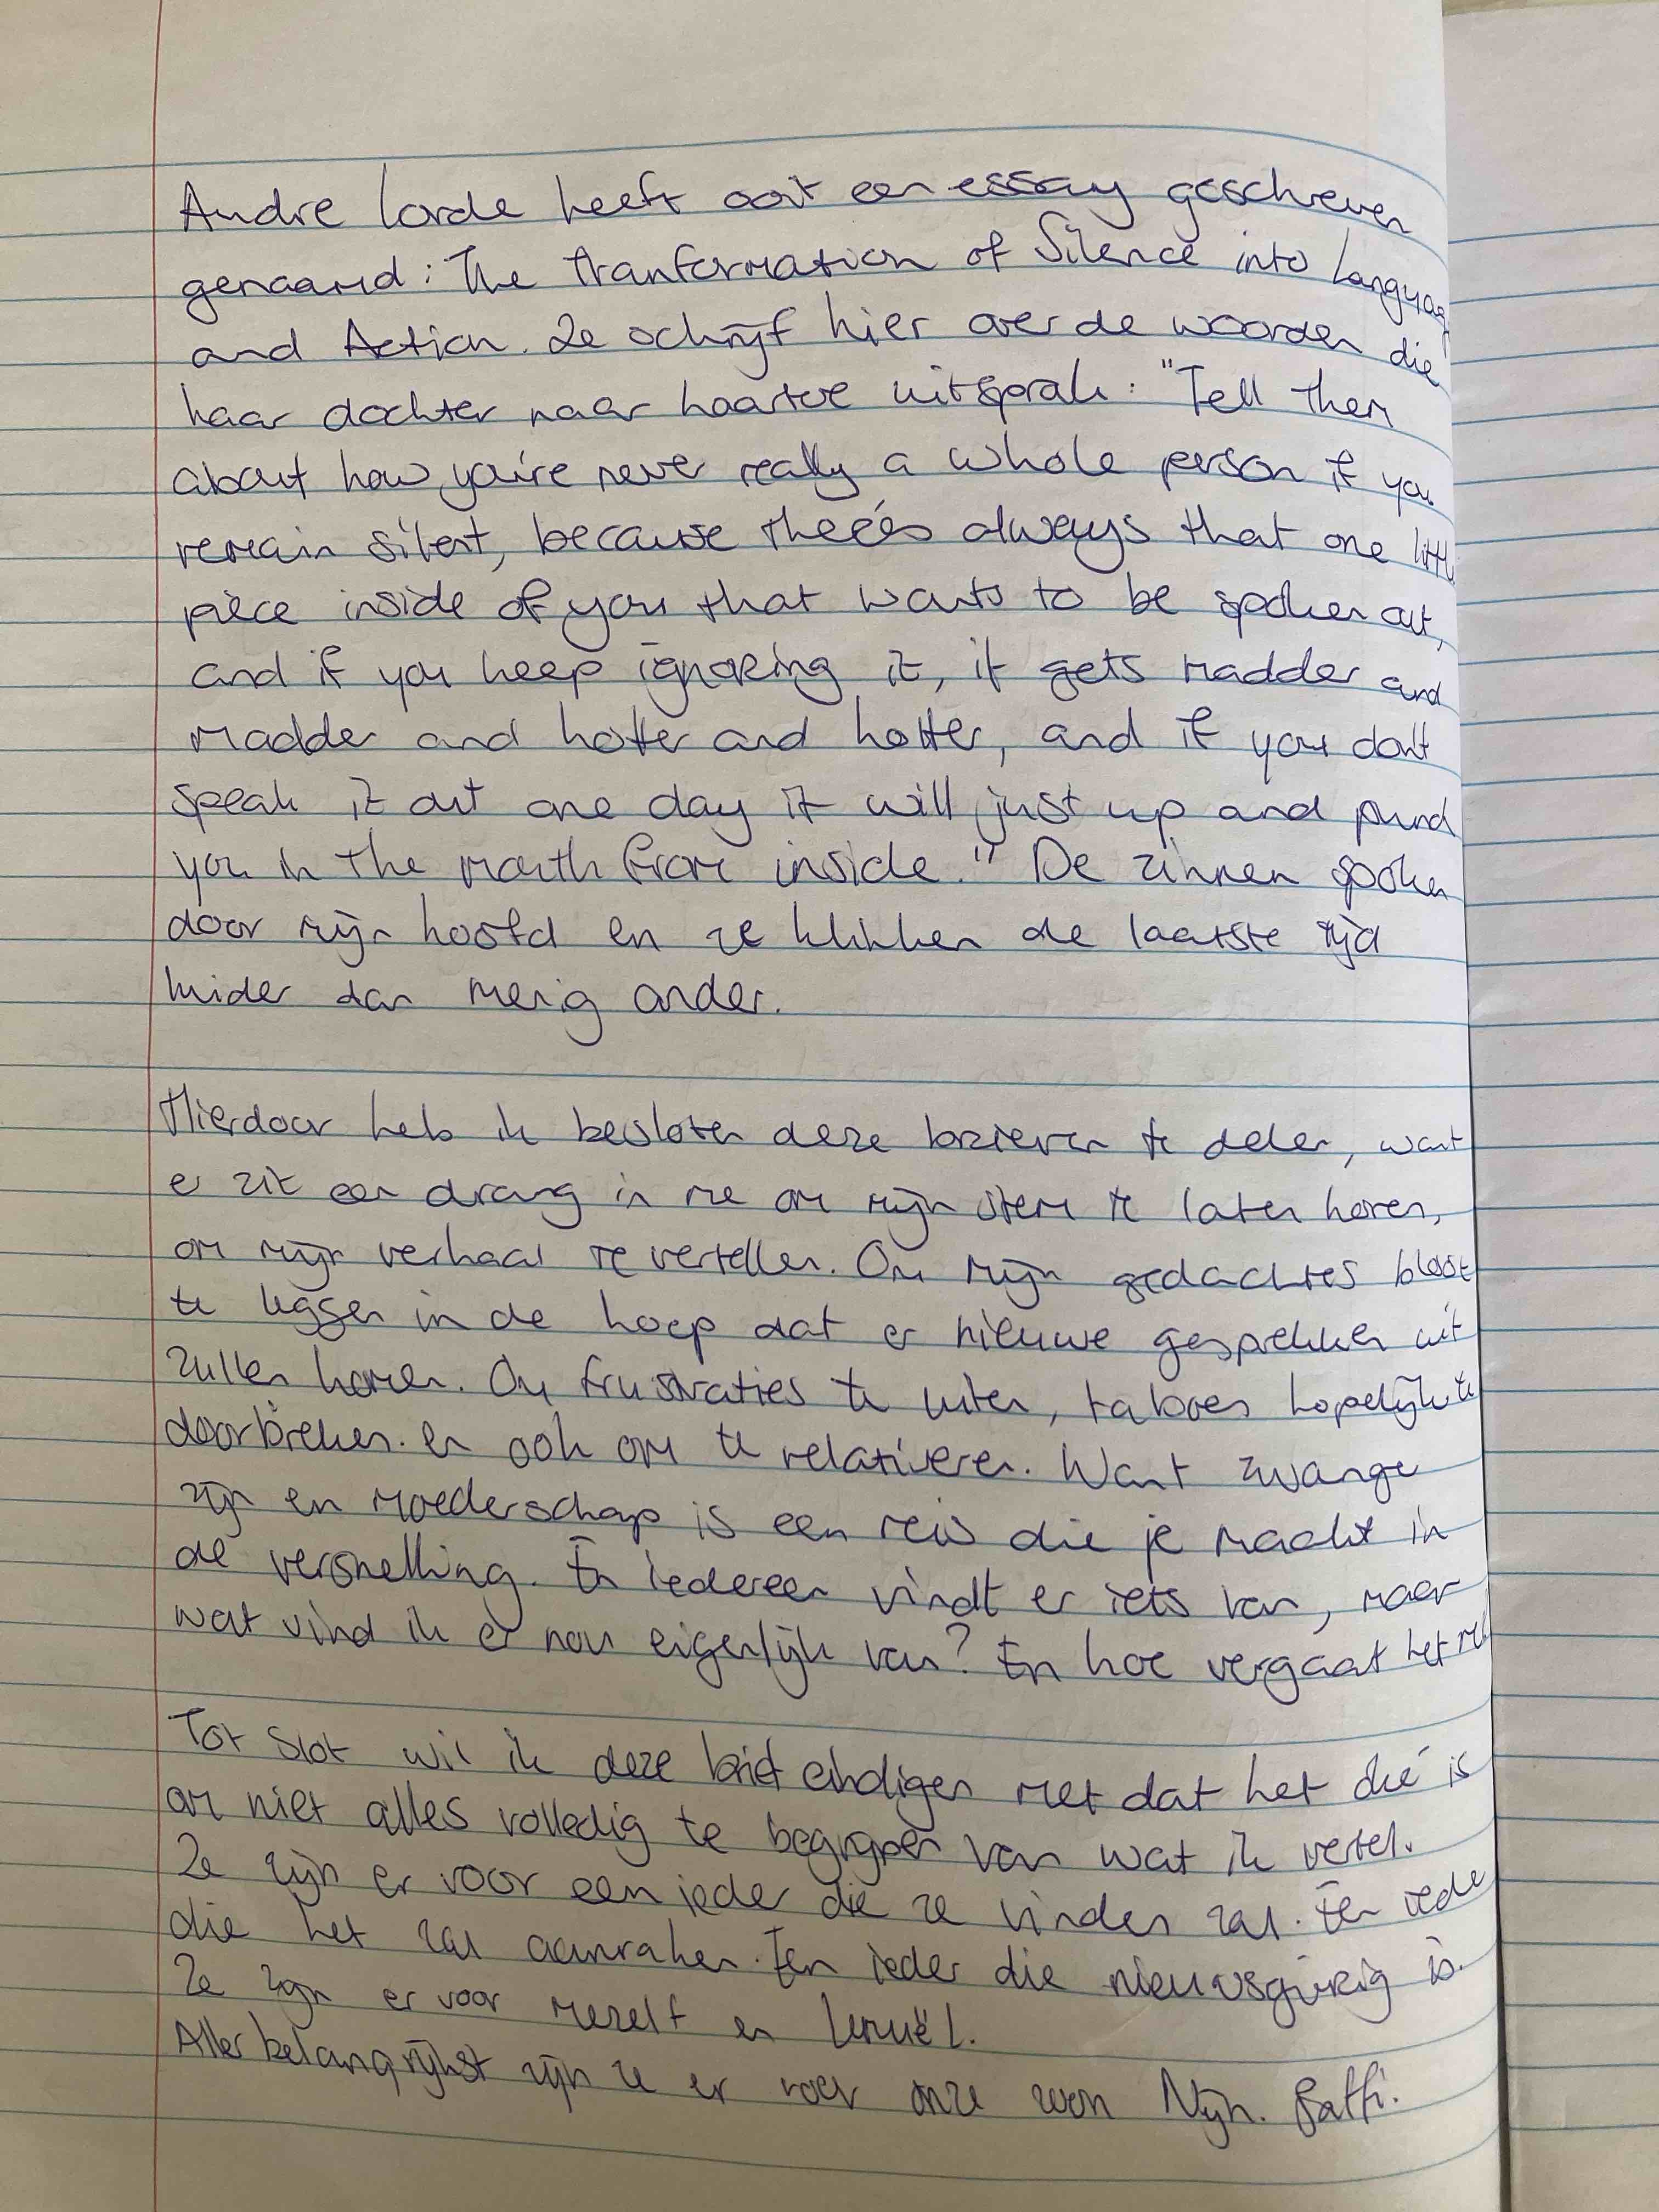 Audre Lorde heeft ooit een essay geschreven
genaamd: The Tranformation of Silence into Language
and Action. Ze schrijft hier over de woorden die
haar dochter naar haar toe uitsprak: "Tell them
about how you're never really a whole person if you
remain silent, because there's always that one little
piece inside of you that wants to be spoken out,
and if you keep ignoring it, it gets madder and
madder and hotter and hotter, and if you don't
speak it out one day it will just up and punch
you in the mouth from inside." De zinnen spoken
door mijn hoofd en ze klinken de laatste tijd
luider dan menig ander.
Hierdoor heb ik besloten deze brieven te delen, want
er zit een drang in me om mijn stem te laten horen,
om mijn verhaal te vertellen. Om mijn gedachtes bloot
te leggen in de hoop dat er nieuwe gesprekken uit
zullen komen. Om frustraties te uiten, taboes hopelijk te
doorbreken. en ook om te relativeren. Want zwanger
zijn en moederschap is een reis die je macht in
de versnelling. En iedereen vindt er iets van, maar
wat vind ik er nou eigenlijk van? En hoe vergaat het mij
Tot slot wil ik deze brief eindigen met dat het oké is
om niet alles volledig te begrijpen van wat ik vertel.
Ze zijn er voor een ieder die ze vinden zal. Een ieder
die het zal aanraken. Een ieder die nieuwsgierig is.
Ze zijn er voor mezelf en Lemuël.
Aller belangrijkst zijn ze er voor onze zoon Nyn.